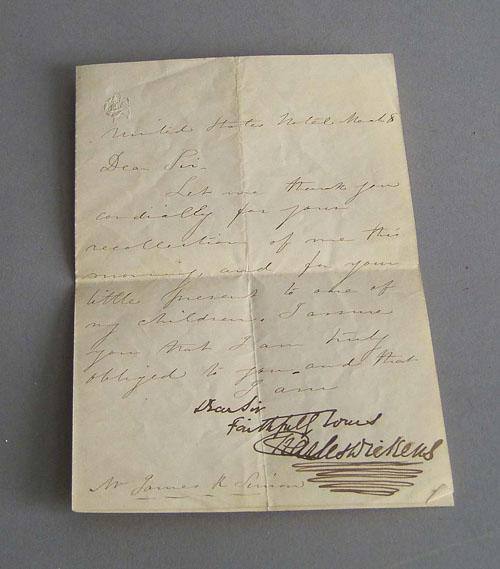 United States Hotel March 8
Dear Sir.
Let me thank you
cordially for your
recollection of me this
morning, and for your
little present to one of
my children. I assure
you that I am truly
obliged to you, and that
I am
Dear Sir
Faithfully Yours
Charles Dickens
Mr James K